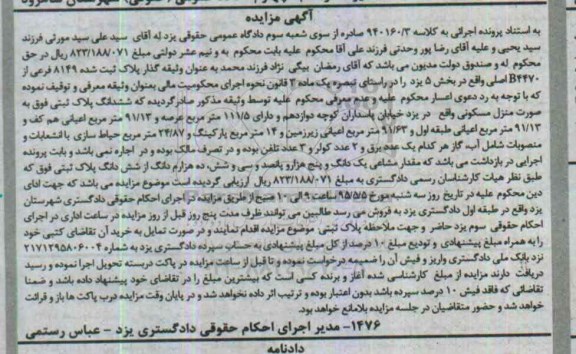 آگهی مزایده
به استناد پرونده اجرائی به کلاسه ۹۴۰۱۶۰/۳ صادره از سوی شعبه سوم دادگاه عمومی حقوقی یزد له آقای سید علی سید مورثی فرزند
سید یحیی و علیه آقای رضا پور وحدتی فرزند علی آقا محکوم علیه بابت محکوم به و نیم عشر دولتی مبلغ ۸۲۳/۱۸۸/۰۷۱ ریال در حق
محکوم له و صندوق دولت مدیون می باشد که آقای رمضان بیگی نژاد فرزند محمد به عنوان وثیقه گذار پلاک ثبت شده ۸۱۴۹ فرعی از
B۴۴۷۰ اصلی واقع در بخش ۵ یزد را در راستای تبصره یک ماده ۳ قانون نحوه اجرای محکومیت مالی بعنوان وثیقه معرفی و توقیف نموده
که با توجه به رد دعوی اعسار محکوم علیه و عدم معرفی محکوم علیه توسط وثیقه مذکور صادر گردیده که ششدانگ پلاک ثبتی فوق به
صورت منزل مسکونی واقع در یزد خیابان پاسداران کوچه دوازدهم و دارای ۱۱۱/۵ متر مربع عرصه و ۹۱/۱۳ متر مربع اعیانی هم کف و
۹۱/۱۳ متر مربع اعیانی طبقه اول و ۹۱/۶۳ متر مربع اعیانی زیرزمین و ۱۴ متر مربع پارکینگ و ۲۴/۸۷ متر مربع حیاط سازی با انشعابات و
منصوبات شامل آب، گاز هر کدام یک عدد برق و ۲ عدد کولر و ۳ عدد تلفن بوده و در تصرف مالک بوده و در اجاره نمی باشد و بابت پرونده
اجرایی در بازداشت می باشد که مقدار مشاعی یک دانگ و پنج هزار و پانصد و سی و شش، ده هزارم دانگ از شش دانگ پلاک ثبتی فوق که
طبق نظر هیات کارشناسان رسمی دادگستری به مبلغ ۸۲۳/۱۸۸/۰۷۱ ریال ارزیابی گردیده است موضوع مزایده می باشد که جهت ادای
دین محکوم علیه در تاریخ روز سه شنبه مورخ ۹۵/۷/۵ ساعت ۹ الی ۱۰ صبح از طریق مزایده در اجرای احکام حقوقی دادگستری شهرستان
یزد واقع در طبقه اول دادگستری یزد به فروش می رسد طالبین می توانند ظرف مدت پنج روز قبل از روز مزایده در ساعت اداری در اجرای
احکام حقوقی سوم یزد حاضر و جهت ملاحظه پلاک ثبتی موضوع مزایده اقدام نمایند و در صورت تمایل به خرید آن تقاضای کتبی خود
را به همراه مبلغ پیشنهادی و تودیع مبلغ ۱۰ درصد از کل مبلغ پیشنهادی به حساب سپرده دادگستری یزد به شماره ۲۱۷۱۲۹۵۸۰۶۰۰۴
نزد بانک ملی دادگستری واریز و فیش آن را ضمیمه درخواست نموده و تا قبل از ساعت مزایده در پاکت دربسته تحویل اجرا نموده و رسید
دریافت دارند مزایده از مبلغ کارشناسی شده آغاز و برنده کسی است که بیشترین مبلغ را در تقاضای خود پیشنهاد داده باشد و ضمنا
تقاضائی که فاقد فیش ۱۰ درصد سپرده باشد بدون اعتبار بوده و ترتیب اثر داده نخواهد شد و در پایان وقت مزایده درب پاکت ها باز و قرائت
خواهد شد و حضور متقاضیان در جلسه مزایده بلامانع خواهد بود.
۱۴۷۶- مدیر اجرای احکام حقوقی دادگستری یزد - عباس رستمی
دادنامه